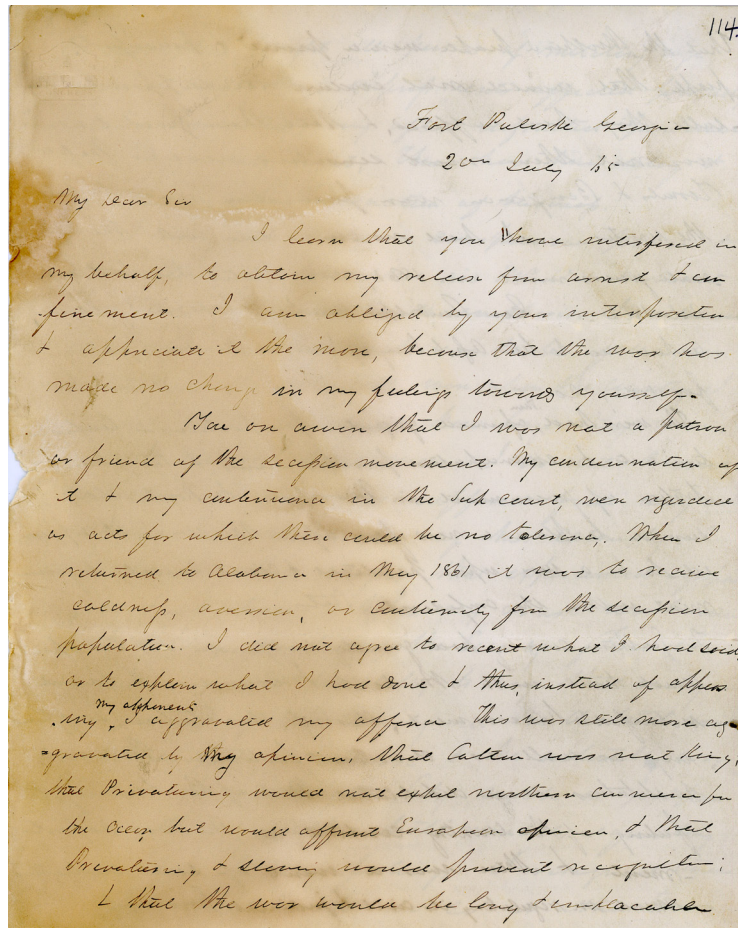 114.
Fort Pulaski Georgia
20th July 65
My Dear Sir
I learn that you have interposed in
my behalf, to obtain my release from arrest & con
finement. I am obliged by your interposition
& appreciate it the more, because that the war has
made no change in my feelings towards yourself-
You are aware that I was not a patron
or friend of the secession movement. My condemnation of
it & my continuance in the Sup court, were regarded
as acts for which there could be no tolerance. When I
returned to Alabama in May 1861 it was to receive
coldness, aversion, or contumely from the secession
population. I did not agree to recant what I had said
or to explain what I had done & thus, instead of appeas
ing my opponents, I aggravated my offence This was still more ag-
=gravated by my opinion, that Cotton was not King,
that Privateering would not expel northern commerce from
the ocean but would affront European opinion, & that
Privateering & slavery would prevent recognition;
& that the war would be long & implacable.